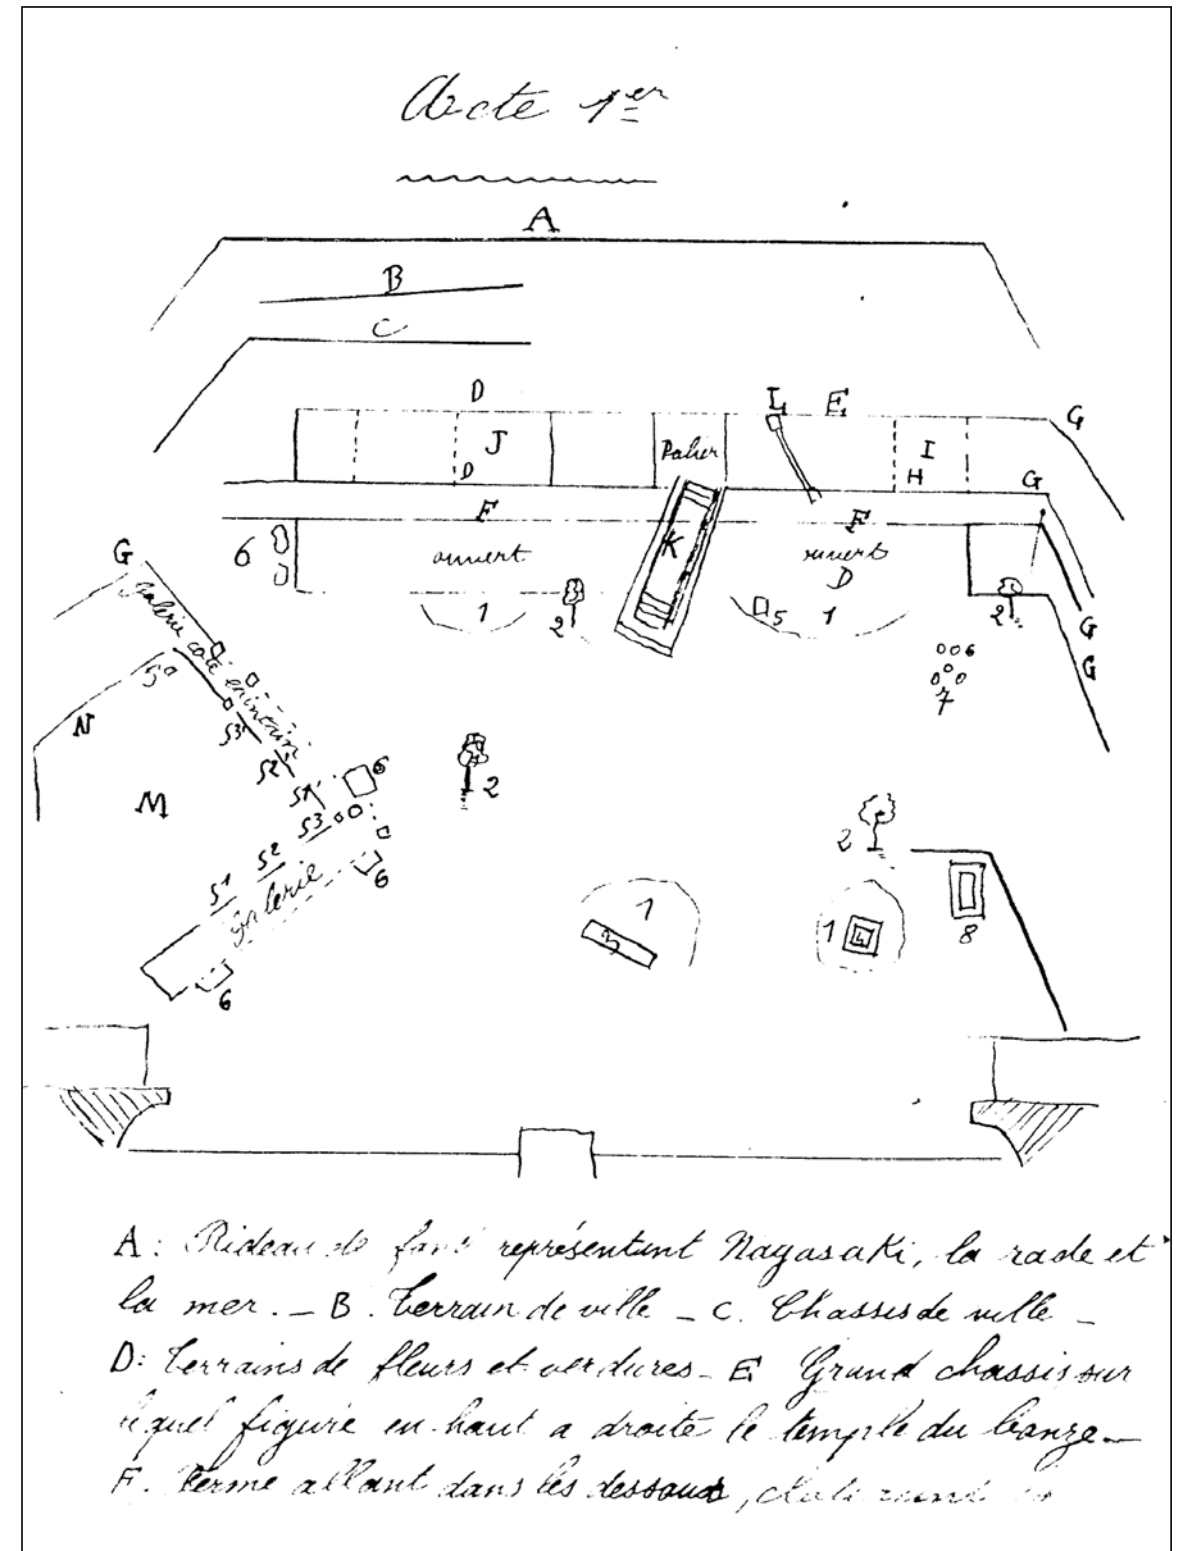 Acte 1er
A
B
C
D
L E G
J Palier I
D H G
F F
6 ouvert K ouvert
G D
Galerie coté 1 2 5 1 2 G
G
7
N S3' S2' S1' 6 2
M S3
S2 2
S1 Galerie 6
1 1 4 8
3
6
A: Rideau de fond représentant Nagasaki, la rade et
la mer. _ B. Terrain de ville _ C. Chassis de ville _
D: Terrains de fleurs et verdures _ E Grand chassis sur
lequel figure en haut a droite le temple du bonze _
F. Ferme allant dans les dessous,